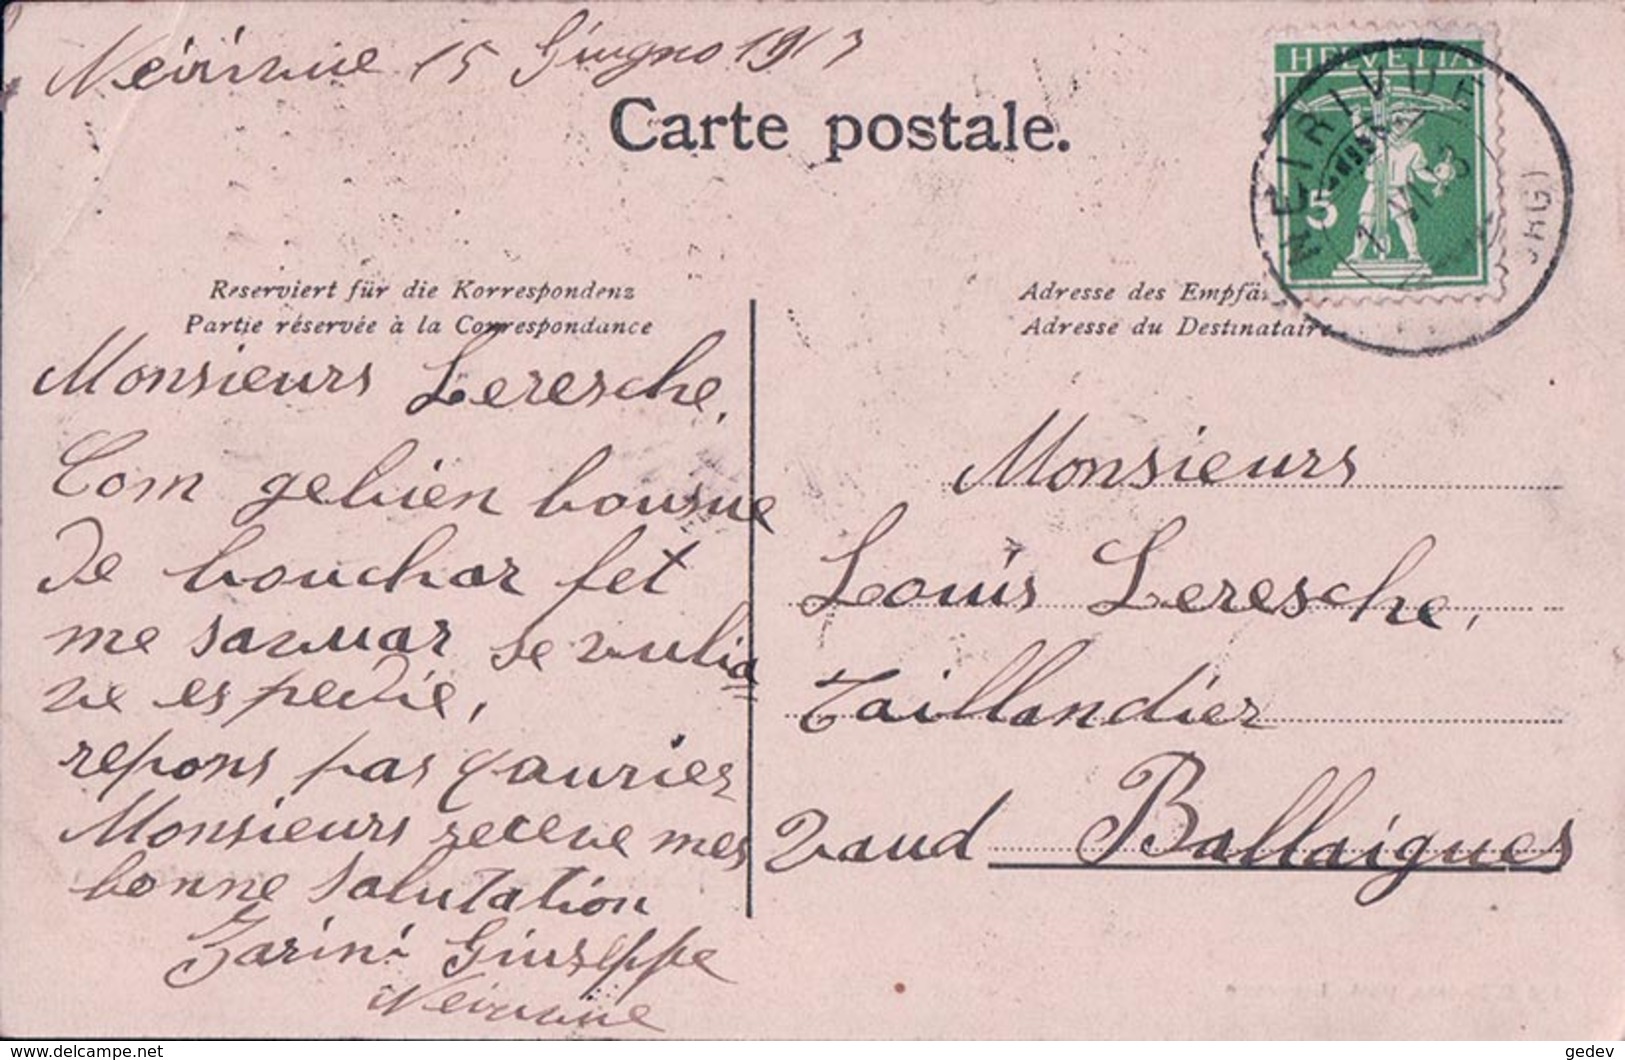 Neirivue 15 Giugno 1913
Carte postale.
HELVETIA
5
NEIRIVUE
VI.13
Reserviert für die Korrespondenz
Partie réservée à la Correspondance
Adresse des Empfän
Adresse du Destinataire
Monsieurs Leresche,
Com gebien bousue
de bouchar fet
me savuar se vulia
ve espedie,
repons pas gauries
Monsieurs receve mes
bonne Salutation
Zarini Giuseppe
Neirivue
Monsieurs
Louis Leresche,
Taillandier
Vaud Ballaigues
https://www.delcampe.net
gedev